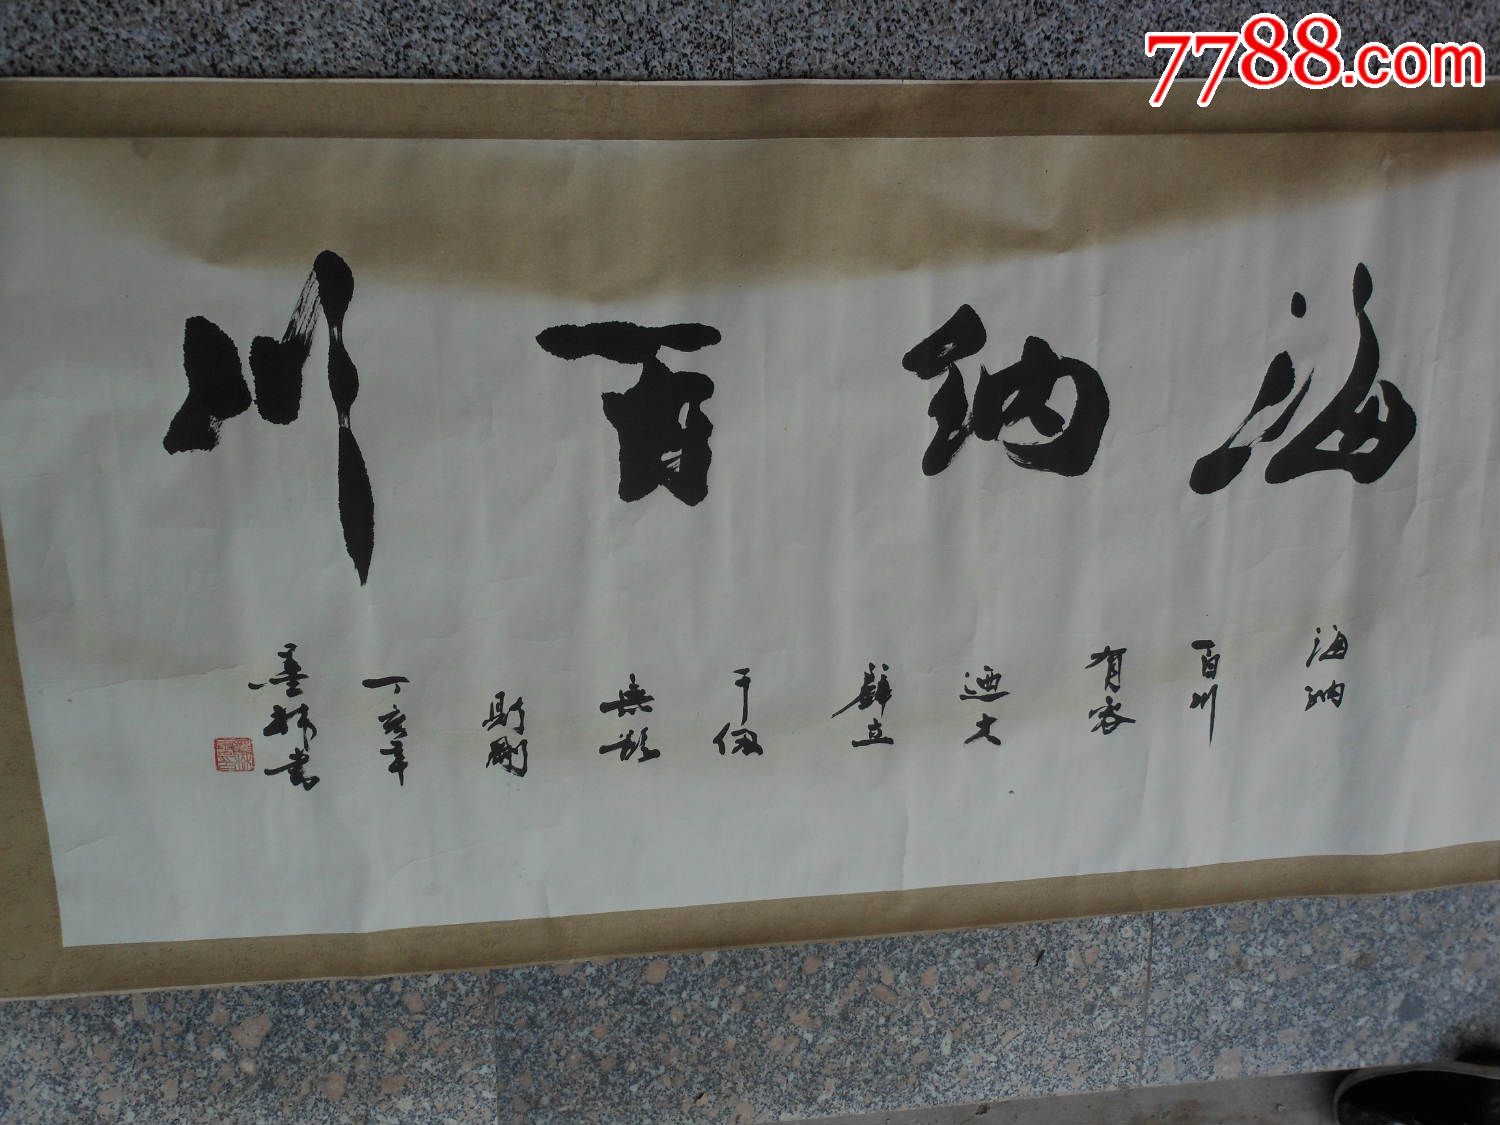 7788.com
海纳百川
海纳
百川
有容
迺大
壁立
千仞
無欲
則剛
丁亥年
墨林书